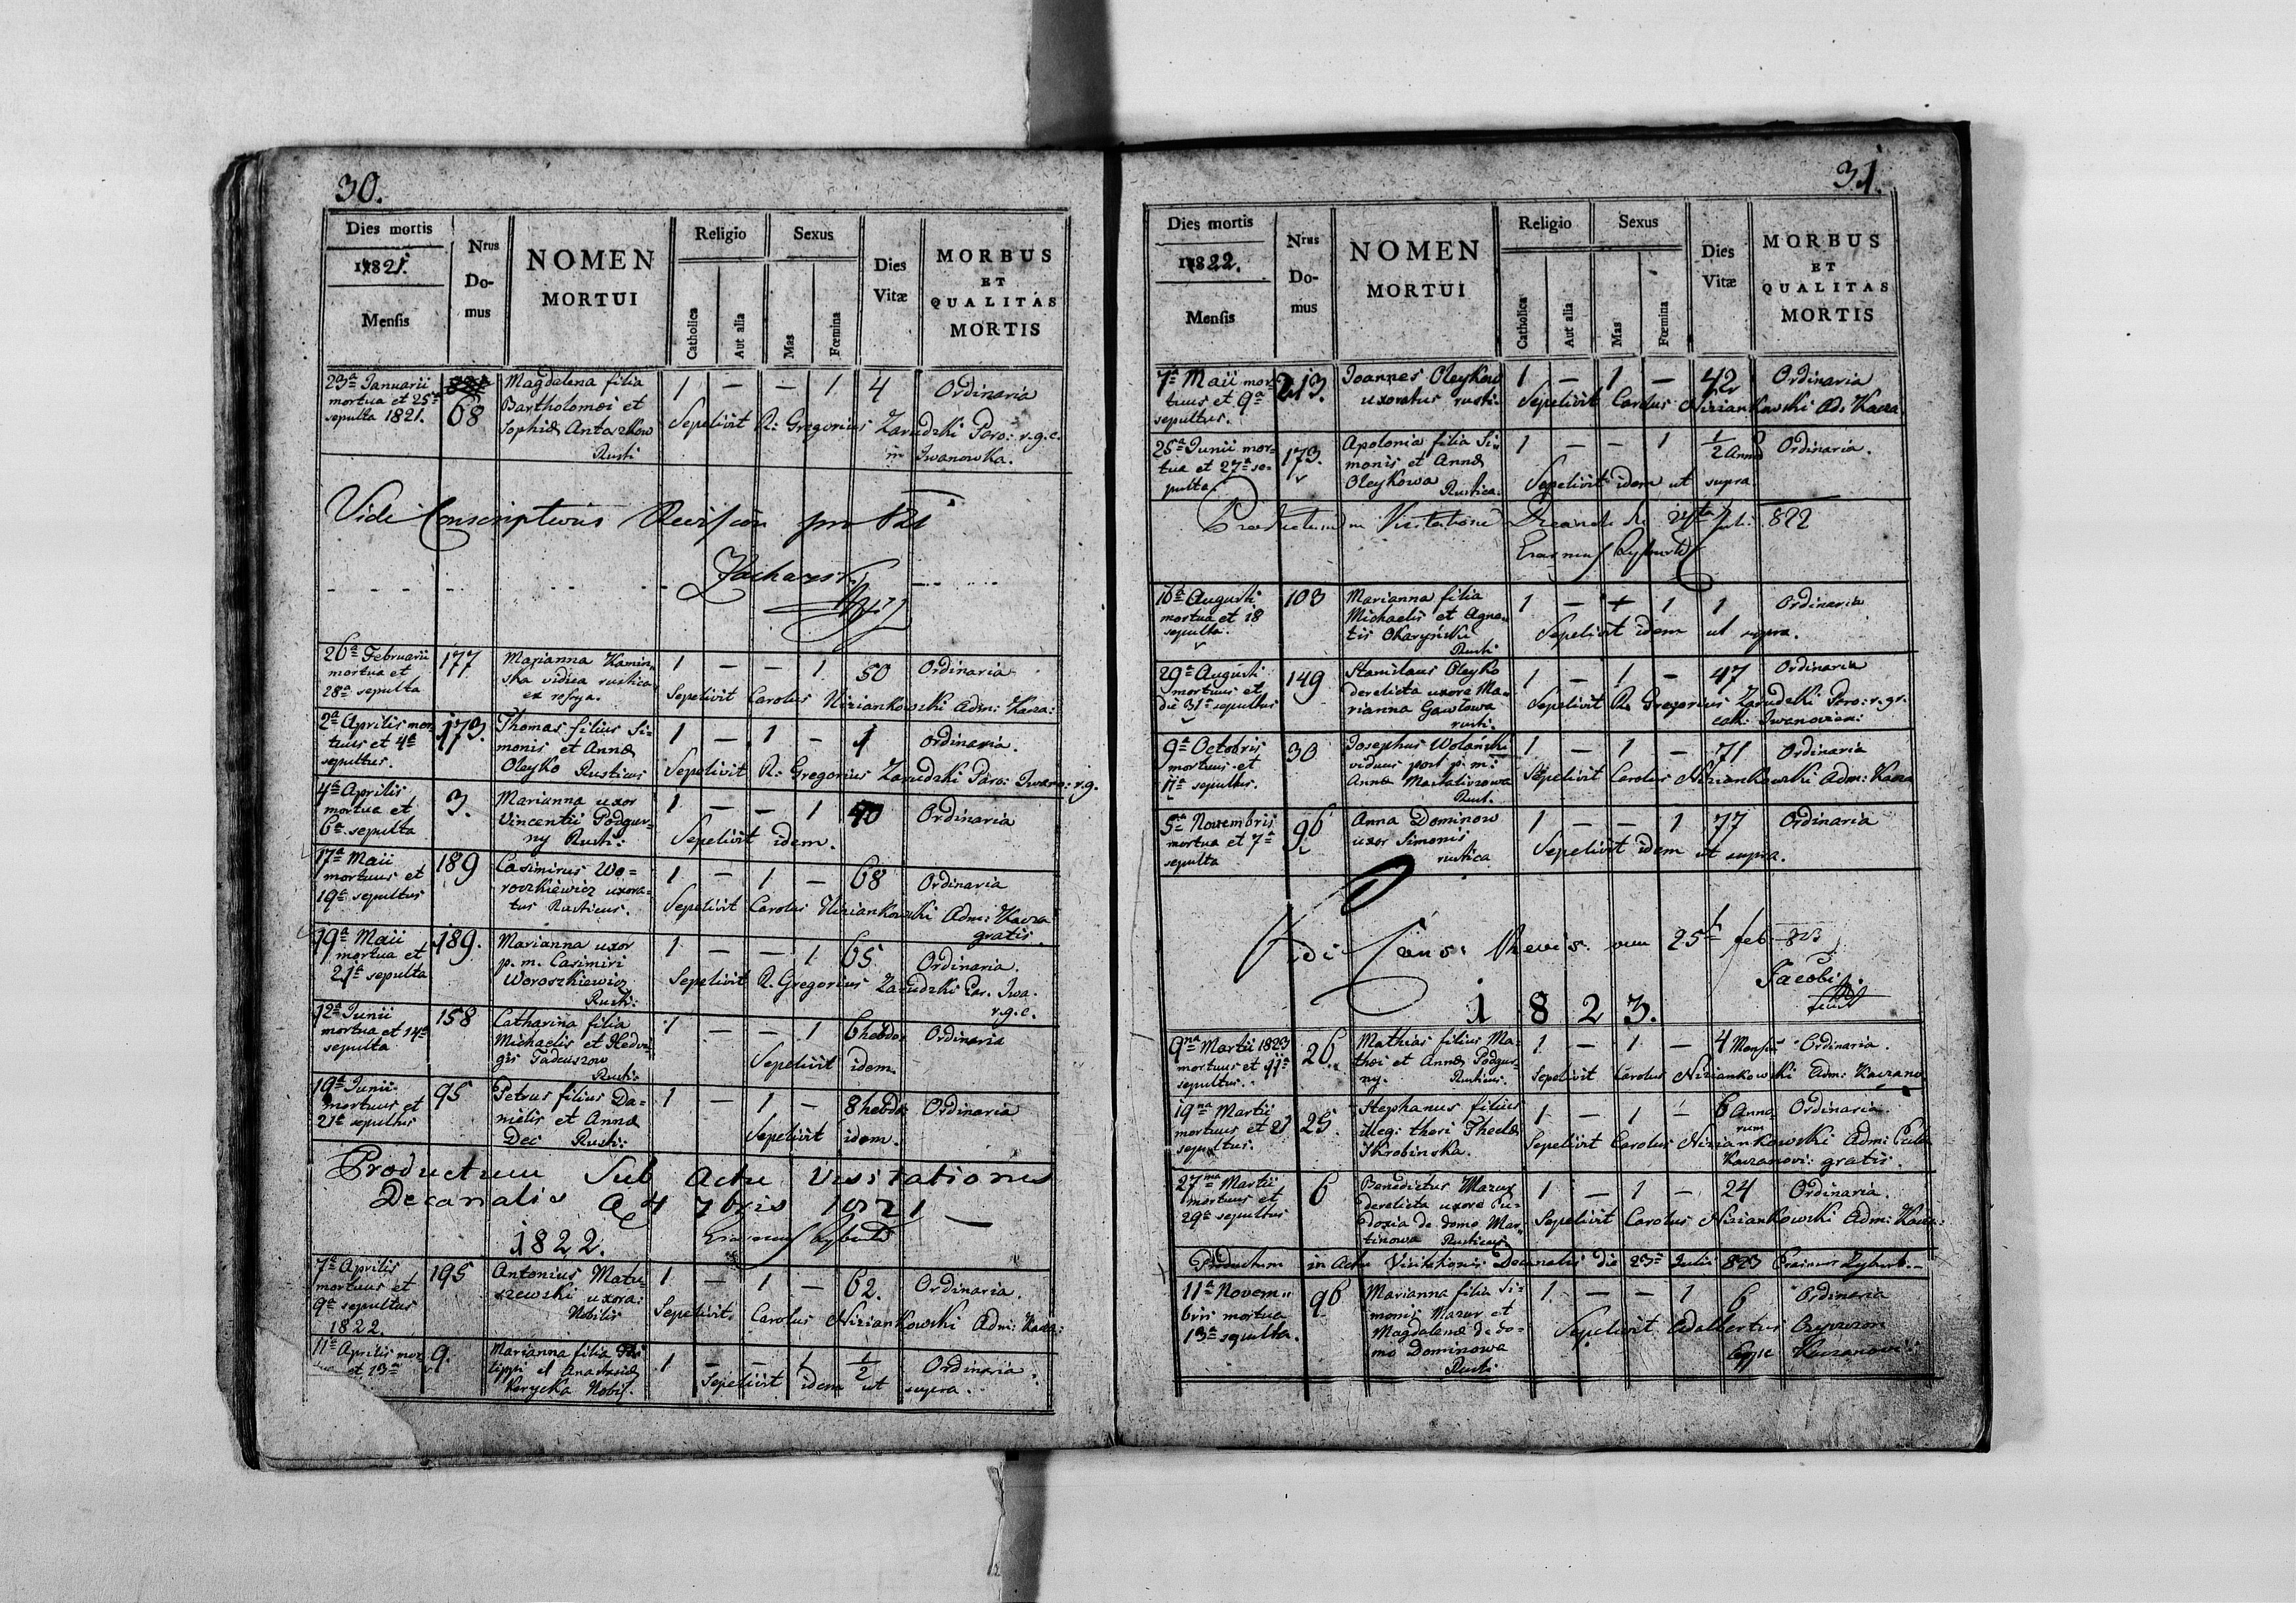 30.
Dies mortis
1821.
Mensis
Nrus
Do-
mus
NOMEN
MORTUI
Religio
Catholica
Aut alia
Sexus
Mas
Fœmina
Dies
Vitæ
MORBUS
ET
QUALITAS
MORTIS
23a Januarii
mortua et 25a
sepulta 1821.
68
Magdalena filia
Bartholomei et
Sophiæ Antoszkow
Rusti
1 — — 1 4 Ordinaria
Sepelivit R: Gregorius Zarudzki Paro: r.g.c.
in Iwanowka.
Vide Conscriptivis Revision pro 821
26a Februarii
mortua et
28a sepulta
177
Marianna Kamin-
ska vidua rustica
1 — — 1 50 Ordinaria
Sepelivit Carolus Niziankowski Adm: Kacza:
2a Aprilis mor
tuus et 4a
sepultus.
173.
Thomas filius Si-
monis et Annæ
Oleyko Rusticus
1 — 1 — 1 Ordinaria.
Sepelivit R: Gregorius Zarudzki Paro: Iwano: r.g.
4a Aprilis
mortua et
6a sepulta
3.
Marianna uxor
Vincentii Podgur-
ny Rusti:
1 — — 1 40 Ordinaria
Sepelivit idem.
17a Maii
mortuus et
19a sepultus
189
Casimirus Wo-
roszkiewicz uxora-
tus Rusticus.
1 — 1 — 68 Ordinaria
Sepelivit Carolus Niziankowski Adm: Kacza:
gratis.
19a Maii
mortua et
21a sepulta
189.
Marianna uxor
p. m. Casimiri
Woroszkiewicz
Rusti:
1 — — 1 65 Ordinaria.
Sepelivit R. Gregorius Zarudzki Par. Iwa.
r.g.c.
12a Junii
mortua et 14a
sepulta
158
Catharina filia
Michaelis et Hedvi-
gis Tadeuszow
Rusti:
1 — — 1 6 hebdo: Ordinaria
Sepelivit idem.
19a Junii
mortuus et
21a sepultus
95
Petrus filius Da-
nielis et Annæ
Dec Rusti:
1 — 1 — 8 hebdo: Ordinaria
Sepelivit idem.
Productum Sub Actu Visitationis
Decanalis 4 7bris 1821 —
1822.
7a Aprilis
mortuus et
9a sepultus
1822.
195
Antonius Matu-
szewski uxora:
Nobilis
1 — 1 — 62. Ordinaria.
Sepelivit Carolus Niziankowski Adm: Kacza:
11a Aprilis mor
et 13a
9.
Marianna filia Phi
lippi et Anastasiæ
Karycka Nobil.
1 — — 1 1/2 Ordinaria
Sepelivit idem ut supra.
31.
Dies mortis
1822.
Mensis
Nrus
Do-
mus
NOMEN
MORTUI
Religio
Catholica
Aut alia
Sexus
Mas
Fœmina
Dies
Vitæ
MORBUS
ET
QUALITAS
MORTIS
7a Maii mor-
tuus et 9a
sepultus.
213.
Joannes Oleykow
uxoratus rusti-
1 — 1 — 42 Ordinaria
Sepelivit Carolus Niziankowski Ad: Kacza.
25a Junii mor-
tua et 27a se-
pulta.
173.
Apolonia filia Si-
monis et Annæ
Oleykowa Rustica.
1 — — 1 1/2 Anni Ordinaria.
Sepelivit idem ut supra.
Productum in Visitatione 822
16a Augusti
mortua et 18
sepulta.
103
Marianna filia
Michaelis et Agne-
tis Okaryński
Rusti
1 — — 1 1 Ordinaria
Sepelivit idem ut supra.
29a Augusti
mortuus et
die 31a sepultus
149
Stanislaus Oleyko
derelicta uxore Ma-
rianna Gawlowa
rusti.
1 — 1 — 47 Ordinaria
Sepelivit R. Gregorius Zarudzki Paro: r.gr.
cath: Iwanovien:
9a Octobris
mortuus et
11a sepultus.
30
Josephus Wolański
viduus post p. m:
Anna
Rust.
1 — 1 — 71 Ordinaria
Sepelivit Carolus Niziankowski Adm: Kacza
5a Novembris
mortua et 7a
sepulta
96
Anna Dominow
uxor Simonis
rustica
1 — — 1 77 Ordinaria
Sepelivit idem ut supra.
25 feb 823
Jacobi
1823.
9na Martii 1823
mortuus et 11a
sepultus.
26.
Mathias filius Ma-
thei et Annæ Podgur-
ny. Rusticus.
1 — 1 — 4 Mensiu Ordinaria.
Sepelivit Carolus Niziankowski Adm: Kaczano
19na Martii
mortuus et 21
sepultus.
25.
Stephanus filius
illeg: thori Theclæ
Skrobinska.
1 — 1 — 6 Anno
rum
Ordinaria.
Sepelivit Carolus Niziankowski Adm: Eccle
Kaczanovi: gratis.
27ma Martii
mortuus et
29a sepultus
6
Benedictus Mazur
derelicta uxore Eu-
doxia de domo Mar-
tinowa Rusticus
1 — 1 — 24 Ordinaria.
Sepelivit Carolus Niziankowski Adm: Kacza:
Productum in Actu Visitationis Decanalis die 23a Julii 823 Erasmus Rybert. —
11a Novem-
bris mortua
13a sepulta.
96
Marianna filia Si-
monis Mazur et
Magdalenæ de do-
mo Dominowa
Rusti
1 — — 1 6 Ordinaria
Sepelivit Adalbertus
Kaczanovi: